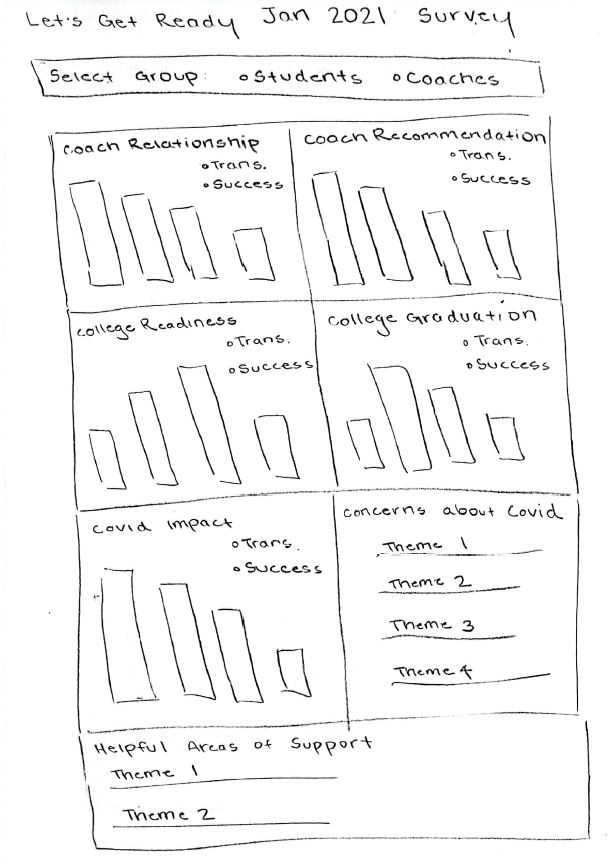 Let's Get Ready Jan 2021 Survey
Select Group: Students Coaches
Coach Relationship
Trans.
Success
Coach Recommendation
Trans.
Success
College Readiness
Trans.
Success
College Graduation
Trans.
Success
Covid Impact
Trans.
Success
Concerns about Covid
Theme 1
Theme 2
Theme 3
Theme 4
Helpful Areas of Support
Theme 1
Theme 2